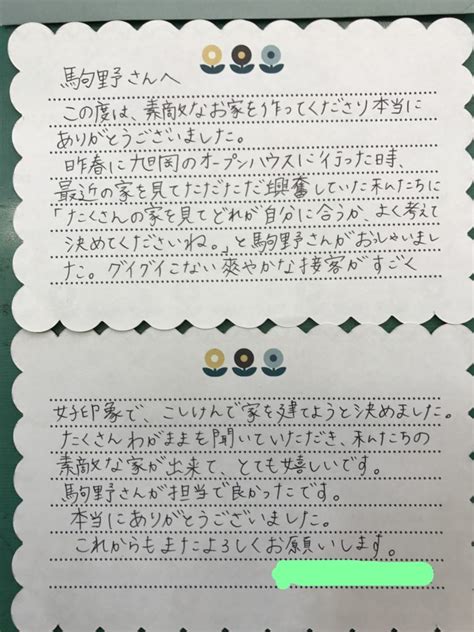 駒野さんへ
この度は、素敵なお家を作ってくださり本当に
ありがとうございました。
昨春に旭岡のオープンハウスに行った時、
最近の家を見てただただ興奮していた私たちに
「たくさんの家を見てどれが自分に合うか、よく考えて
決めてくださいね。」と駒野さんがおっしゃいまし
た。グイグイこない爽やかな接客がすごく
好印象で、こしけんで家を建てようと決めました。
たくさんわがままも聞いていただき、私たちの
素敵な家が出来て、とても嬉しいです。
駒野さんが担当で良かったです。
本当にありがとうございました。
これからもまたよろしくお願いします。